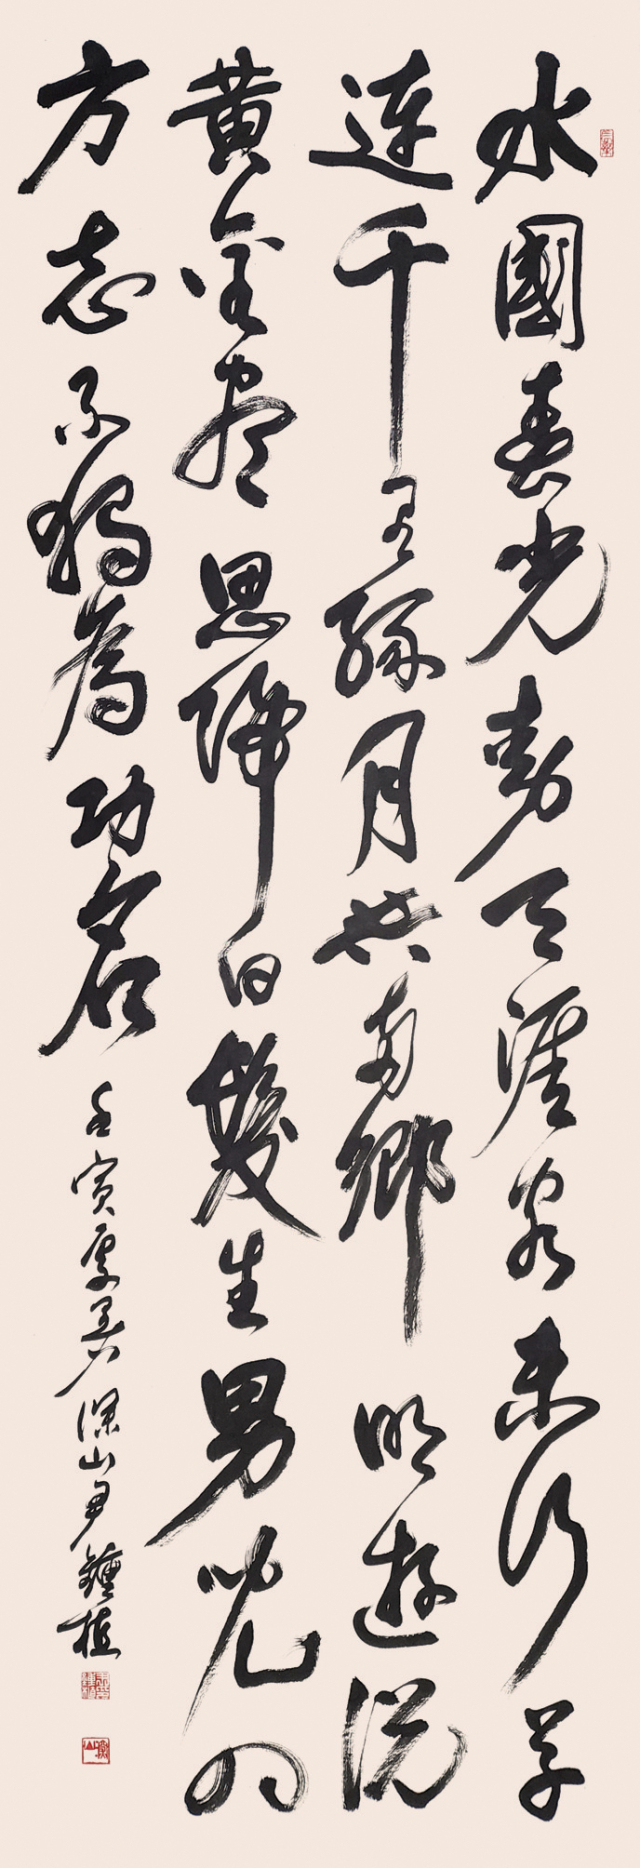 水國春光動天涯客未行草
連千里綠月共兩鄉明遊說
黃金盡思歸白髮生男兒四
方志不獨為功名
壬寅夏 深山尹鍾植